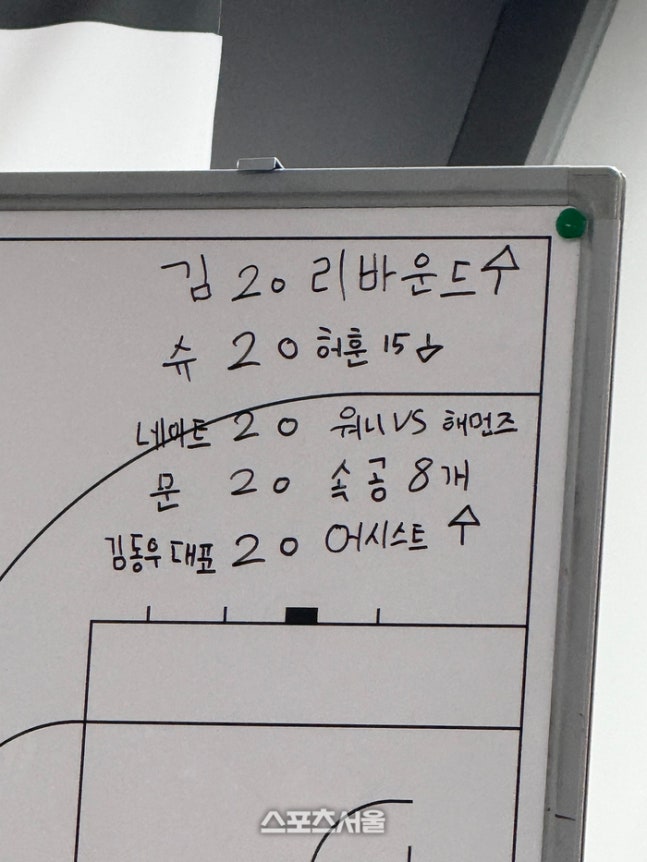 김 20 리바운드수 ↑
슈 20 허훈 15↓
네이트 20 워니 VS 해먼즈
문 20 속공 8개
김동우 대표 20 어시스트 ↑
스포츠서울